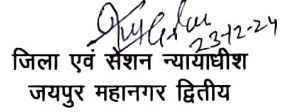 23-12-24
जिला एवं सेशन न्यायाधीश
जयपुर महानगर द्वितीय